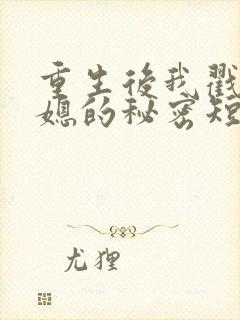 重生後我戳
媳的秘密短
尤狸